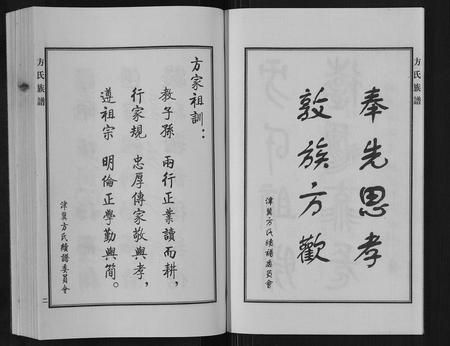 奉先思孝
敦族方歡
津冀方氏續譜委員會
方氏族譜
方家祖訓：
教子孫 兩行正業讀而耕，
行家規 忠厚傳家敬與孝，
遵祖宗 明倫正學勤與簡。
津冀方氏續譜委員會
方氏族譜
二